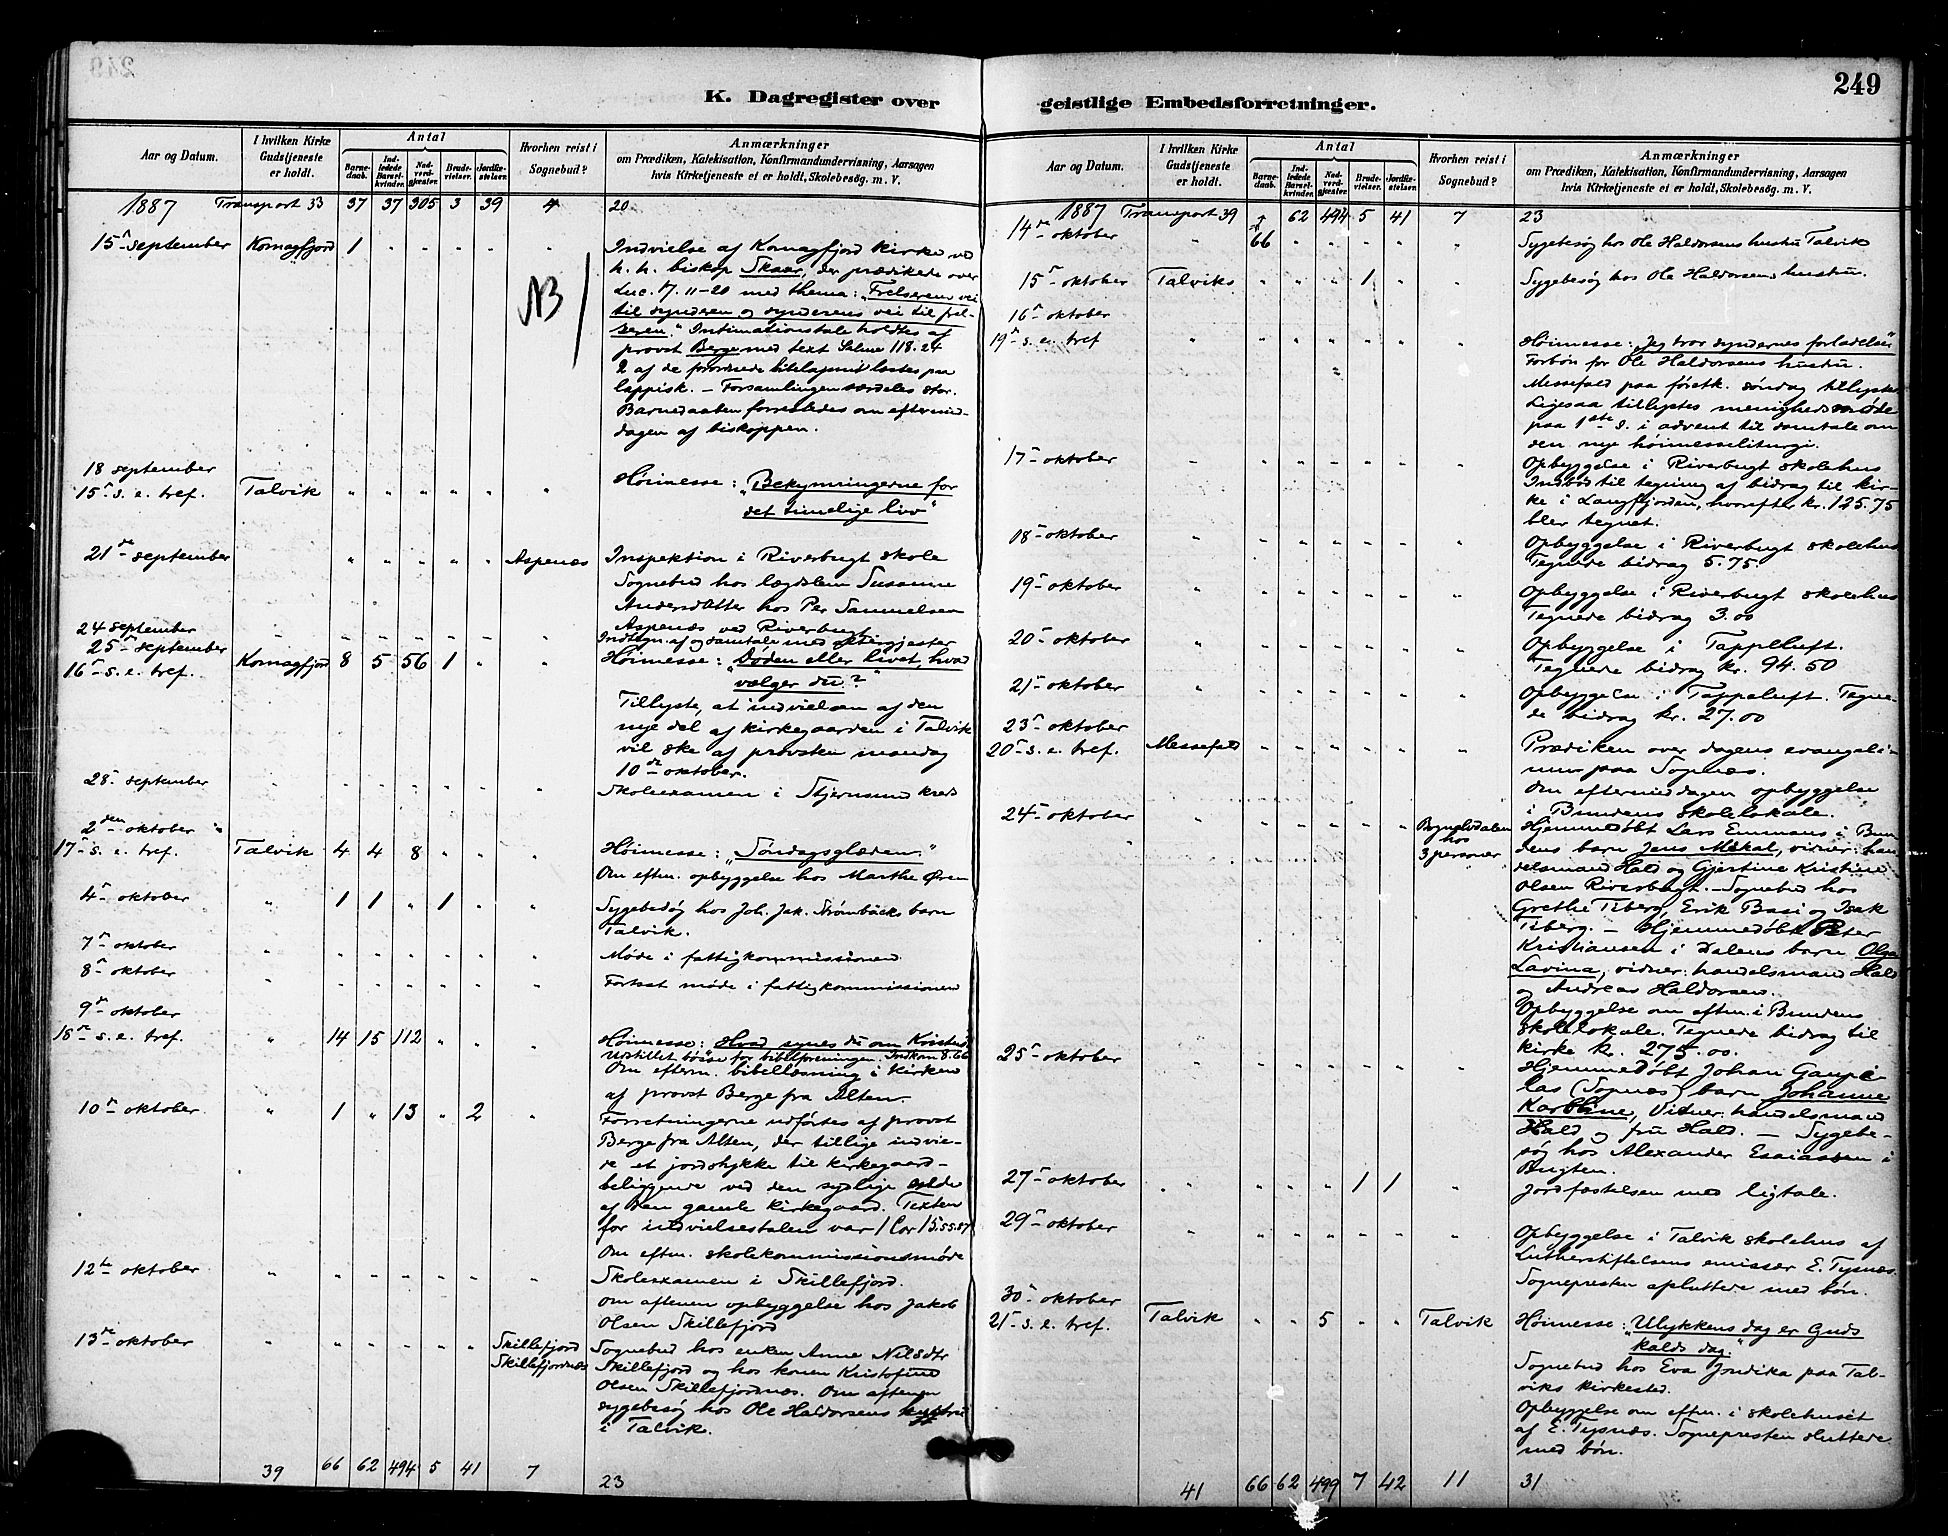 249
K. Dagregister over geistlige Embedsforretninger.
Aar og Datum.
I hvilken Kirke Gudstjeneste er holdt.
Antal
Barnedaab.
Indledede Barselkvinder.
Nadverdgjæster.
Brudevielser.
Jordfæstelser.
Hvorhen reist i Sognebud?
Anmærkninger
om Prædiken, Katekisation, Konfirmandundervisning, Aarsagen
hvis Kirketjeneste ei er holdt, Skolebesøg. m. V.
1887 Transport 33 37 37 305 3 39 4 20
15 september Komagfjord 1 " " " " " Indvielse af Komagfjord Kirke ved
h. h. biskop Skaar, der prædikede over
Luc. 17. 11-20 med thema: "Frelserens vei
til synderen og synderens vei til frel-
seren." Intimationstale holdtes af
provst Berge med text Salme 118.24
2 af de forordnede bibelafsnit læstes paa
lappisk. – Forsamlingen særdeles stor.
Barnedaaben forrettedes om eftermid-
dagen af biskoppen.
NB
18 september
15 s. e. tref. Talvik " " " " " " Høimesse: "Bekymringerne for
det timelige liv"
21 de september " " " " " Aspenæs Inspektion i Riverbugt skole
Sognebud hos lægdslem Susanne
Andersdatter hos Per Samuelsen
Aspenæs ved Riverbugt
24 september Indtegn. af og samtale med altergjester
25 september
16 s. e. tref. Komagfjord 8 5 56 1 " " Høimesse: "Døden eller livet, hvad
vælger du?"
Tillyste, at indvielsen af den
nye del af kirkegaarden i Talvik
vil ske af provsten mandag
10 de oktober.
28 september " " " " " " " Skoleexamen i Stjernsund kreds
2 den oktober
17 s. e. tref. Talvik 4 4 8 " " " Høimesse: "Søndagsglæden."
Om eftm. opbyggelse hos Marthe Øren
4 oktober " 1 1 " 1 " " Sygebesøg hos Joh. Jak. Strømbäcks barn
Talvik.
7 oktober " " " " " " " Møde i fattigkommissionen
8 oktober " " " " " " " Fortsat møde i fattigkommissionen
9 oktober
18 s. e. tref. " 14 15 112 " " " Høimesse: Hvad synes du om Kristus
Opstillet bøsse for bibelforeningen. Indkom 8.66
Om efterm. bibellæsning i Kirken
af provst Berge fra Alten.
10 oktober. " 1 " 13 " 2 " Forretningerne udførtes af provst
Berge fra Alten, der tillige indvie-
de et jordstykke til kirkegaard –
beliggende ved den sydlige side
af den gamle kirkegaard. Texten
for indvielsestalen var 1 Cor 15.55.57
Om eftm. skolekommissionsmøde
12 te oktober " " " " " " " Skoleexamen i Skillefjord.
Om aftenen opbyggelse hos Jakob
Olsen Skillefjord
13 de oktober " " " " " " Skillefjord Skillefjordnæs Sognebud hos enken Anne Nilsdtr
Skillefjord og hos konen Kristofine
Olsen Skillefjordnæs. Om aftenen
sygebesøg hos Ole Haldorsens hustru
i Talvik.
39 66 62 494 5 41 7 23
249
Aar og Datum.
I hvilken Kirke Gudstjeneste er holdt.
Antal
Barnedaab.
Indledede Barselkvinder.
Nadverdgjæster.
Brudevielser.
Jordfæstelser.
Hvorhen reist i Sognebud?
Anmærkninger
om Prædiken, Katekisation, Konfirmandundervisning, Aarsagen
hvis Kirketjeneste ei er holdt, Skolebesøg. m. V.
1887 Transport 39 66 62 494 5 41 7 23
14 oktober " " " " " " Sygebesøg hos Ole Haldorsens hustru Talvik
15 oktober Talviks " " " 1 " " Sygebesøg hos Ole Haldorsens hustru.
16 oktober
19 s. e. tref " " " " " " " Høimesse: "Jeg tror syndernes forladelse"
Forbøn for Ole Haldorsens hustru.
Messefald paa førstk. søndag tillystes
Ligesaa tillystes menighedsmøde
paa 1ste s. i advent til samtale om
den nye høimesseliturgi.
17 oktober " " " " " " " Opbyggelse i Riverbugt skolehus
Indbød til tegning af bidrag til kir-
ke i Langfjorden, hvorefter kr. 125.75
blev tegnet.
18 oktober " " " " " " " Opbyggelse i Riverbugt skolehus
Tegnede bidrag 5.75.
19 oktober " " " " " " " Opbyggelse i Riverbugt skolehus
Tegnede bidrag 3.00
20 oktober " " " " " " " Opbyggelse i Tappeluft.
Tegnede bidrag kr. 94.50
21 oktober " " " " " " " Opbyggelse i Tappeluft. Tegne-
de bidrag kr. 27.00
23 oktober
20 s. e. tref. Messefald " " " " " " Prædiken over dagens evangeli-
um paa Sognæs.
Om eftermiddagen opbyggelse
i Bundens skolelokale.
24 oktober " " " " " " Bognelvdalen hos 3 personer Hjemmedøbt Lars Emmans i Bun-
dens barn Jens Mikal, vidner: han-
delsmand Hald og Gjertine Kristine
Olsen Riverbugt. – Sognebud hos
Grethe Tiberg, Erik Basi og Isak
Tiberg. – Hjemmedøbt Peter
Kristiansen i Dalens barn Olga
Lavina, vidner: handelsmand Hald
og Andreas Haldorsen.
Opbyggelse om eftm. i Bundens
skolelokale. Tegnede bidrag til
kirke kr. 275.00.
25 oktober " " " " " " " Hjemmedøbt Johan
las (Sognæs) barn Johanne
Karoline, Vidner: handelsmand
Hald og fru Hald. – Sygebe-
søg hos Alexander Esaiassen i
Bugten.
27 oktober " " " " 1 1 " Jordfæstelsen med ligtale.
29 oktober " " " " " " " Opbyggelse i Talvik skolehus af
Lutherstiftelsens emissær E. Tysnæs.
Sognepresten afsluttede med bøn.
30 oktober
21 s. e. tref. Talvik " " 5 " " Talvik Høimesse: "Ulykkens dag er Guds
kalds dag."
Sognebud hos Eva Fredrika paa Tal-
viks kirkested.
Opbyggelse om eftm. i skolehuset
af E. Tysnæs. Sognepresten sluttede
med bøn.
41 66 62 499 7 42 11 31